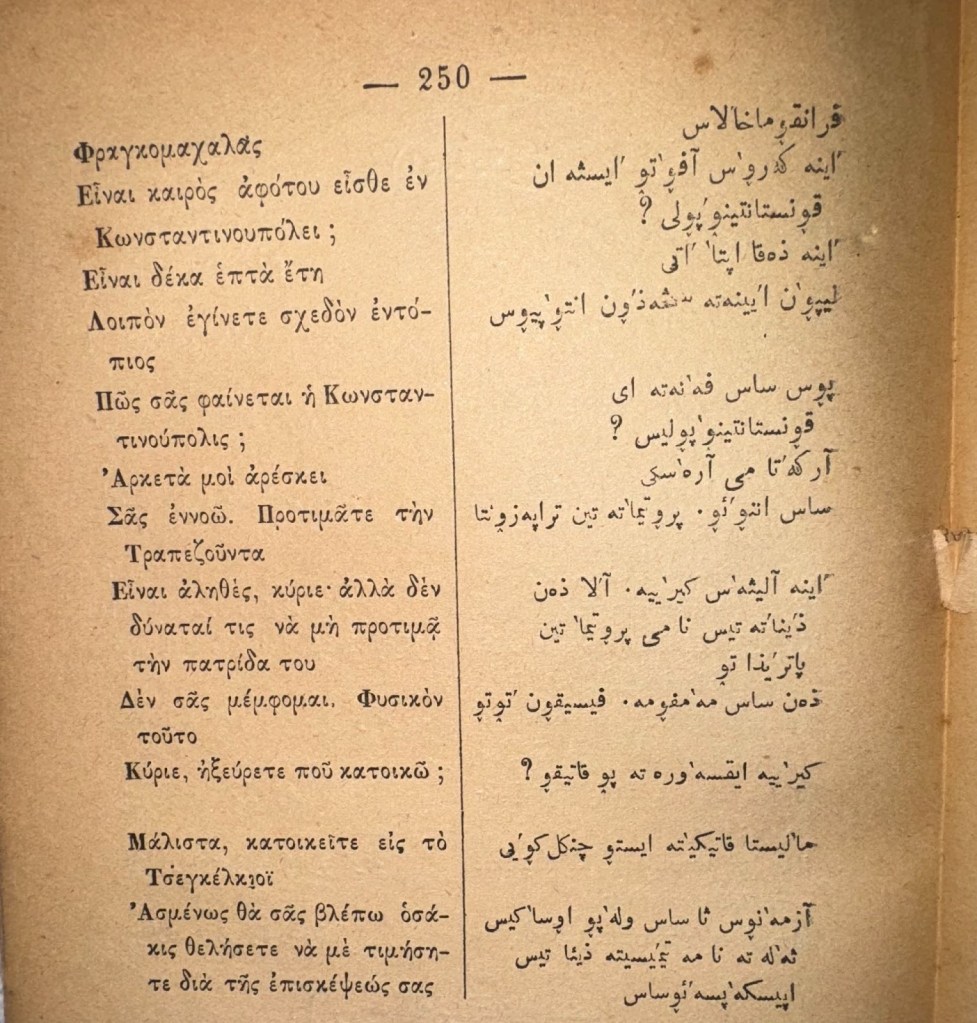 — 250 —
Φραγκομαχαλᾶς
Εἶναι καιρὸς ἀφότου εἶσθε ἐν
Κωνσταντινουπόλει ;
Εἶναι δέκα ἑπτὰ ἔτη
Λοιπὸν ἐγίνετε σχεδὸν ἐντό-
πιος
Πῶς σᾶς φαίνεται ἡ Κωνσταν-
τινούπολις ;
Ἀρκετὰ μοὶ ἀρέσκει
Σᾶς ἐννοῶ. Προτιμᾶτε τὴν
Τραπεζοῦντα
Εἶναι ἀληθὲς, κύριε· ἀλλὰ δὲν
δύναταί τις νὰ μὴ προτιμᾷ
τὴν πατρίδα του
Δὲν σᾶς μέμφομαι. Φυσικὸν
τοῦτο
Κύριε, ἠξεύρετε ποῦ κατοικῶ ;
Μάλιστα, κατοικεῖτε εἰς τὸ
Τσεγκέλκιοϊ
Ἀσμένως θὰ σᾶς βλέπω ὁσά-
κις θελήσετε νὰ μὲ τιμήση-
τε διὰ τῆς ἐπισκέψεώς σας
فرانقوماخالاس
اینه كەروس آفوتو ایسثه ان
قونستانتینوپولی ?
اینه ذەقا اپتا اتی
لیپون ایینەته سشەذون انتوپیوس
پوس ساس فەنەته ای
قونستانتینوپولیس ?
آركەتا می آرەسكی
ساس اننوئو. پروتیماته تین تراپەزونتا
اینه آلیثەس كیرییه. آلا ذەن
ذیناته تیس نا می پروتیما تین
پاتریذا تو
ذەن ساس مەمفومه. فیسیقون توتو
كیرییه ایقسەورە ته پو قاتیقو ?
مالیستا قاتیكیته ایستو چنكل كویی
آزمەنوس ثا ساس ولەپو اوساكیس
ثەلە ته نا مه تیمیسیته ذیئا تیس
اپیسكەپسەئوساس